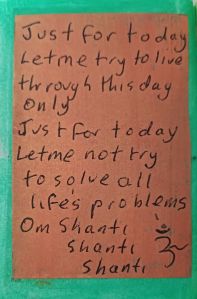 Just for today
Let me try to live
through this day
only
Just for today
Let me not try
to solve all
life's problems
Om Shanti
Shanti ॐ
Shanti